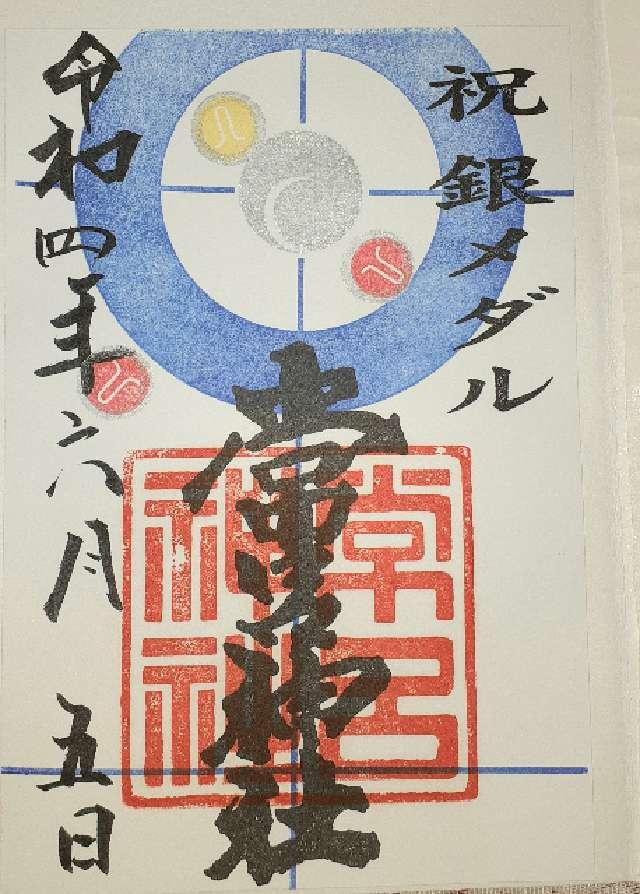 祝銀メダル
常呂神社
常呂
神社
令和四年六月五日